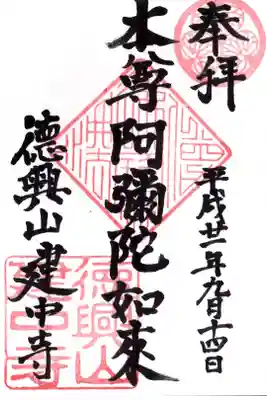 奉拝
平成廿一年九月十四日
本尊阿彌陀如來
德興山建中寺
德興山
建中寺